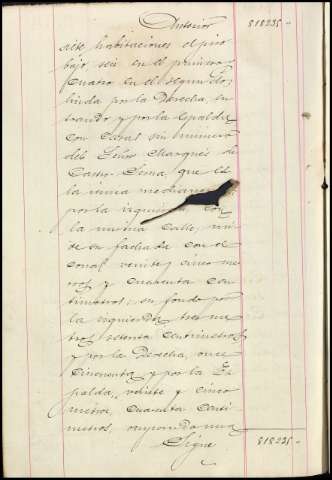 Anterior 818235-
siete habitaciones el piso
bajo, seis en el primero y
cuatro en el segundo;
linda por la Derecha, en-
trando y por la Espalda
con casas sin número
del Señor Marqués de
Castro-Serna, que es
la misma medianera
por la izquierda, con
la misma calle, mi-
de su fachada con el
corral veinte y cinco me-
tros y cuarenta cen-
timetros; su fondo por
la izquierda tres me-
tros setenta centimetros
y por la Derecha, once
cincuenta y por la Es-
palda, veinte y cinco
metros, cuarenta centi-
metros, ocupando una
Sigue 818235-